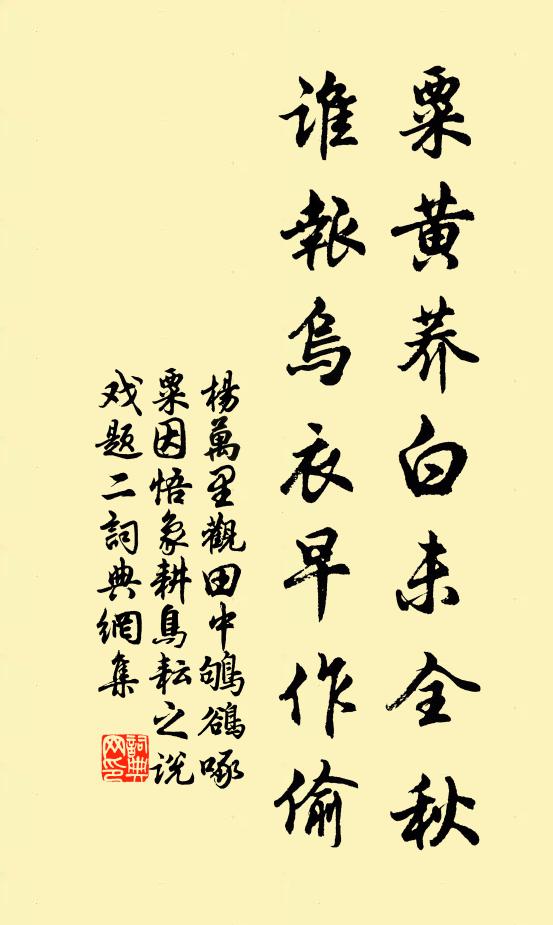 粟黄荞白未全秋
谁報烏衣早作偷
楊萬里觀田中鴝鵒啄
粟因悟象耕鳥耘之说
戏題二詞典網集
詞典网印